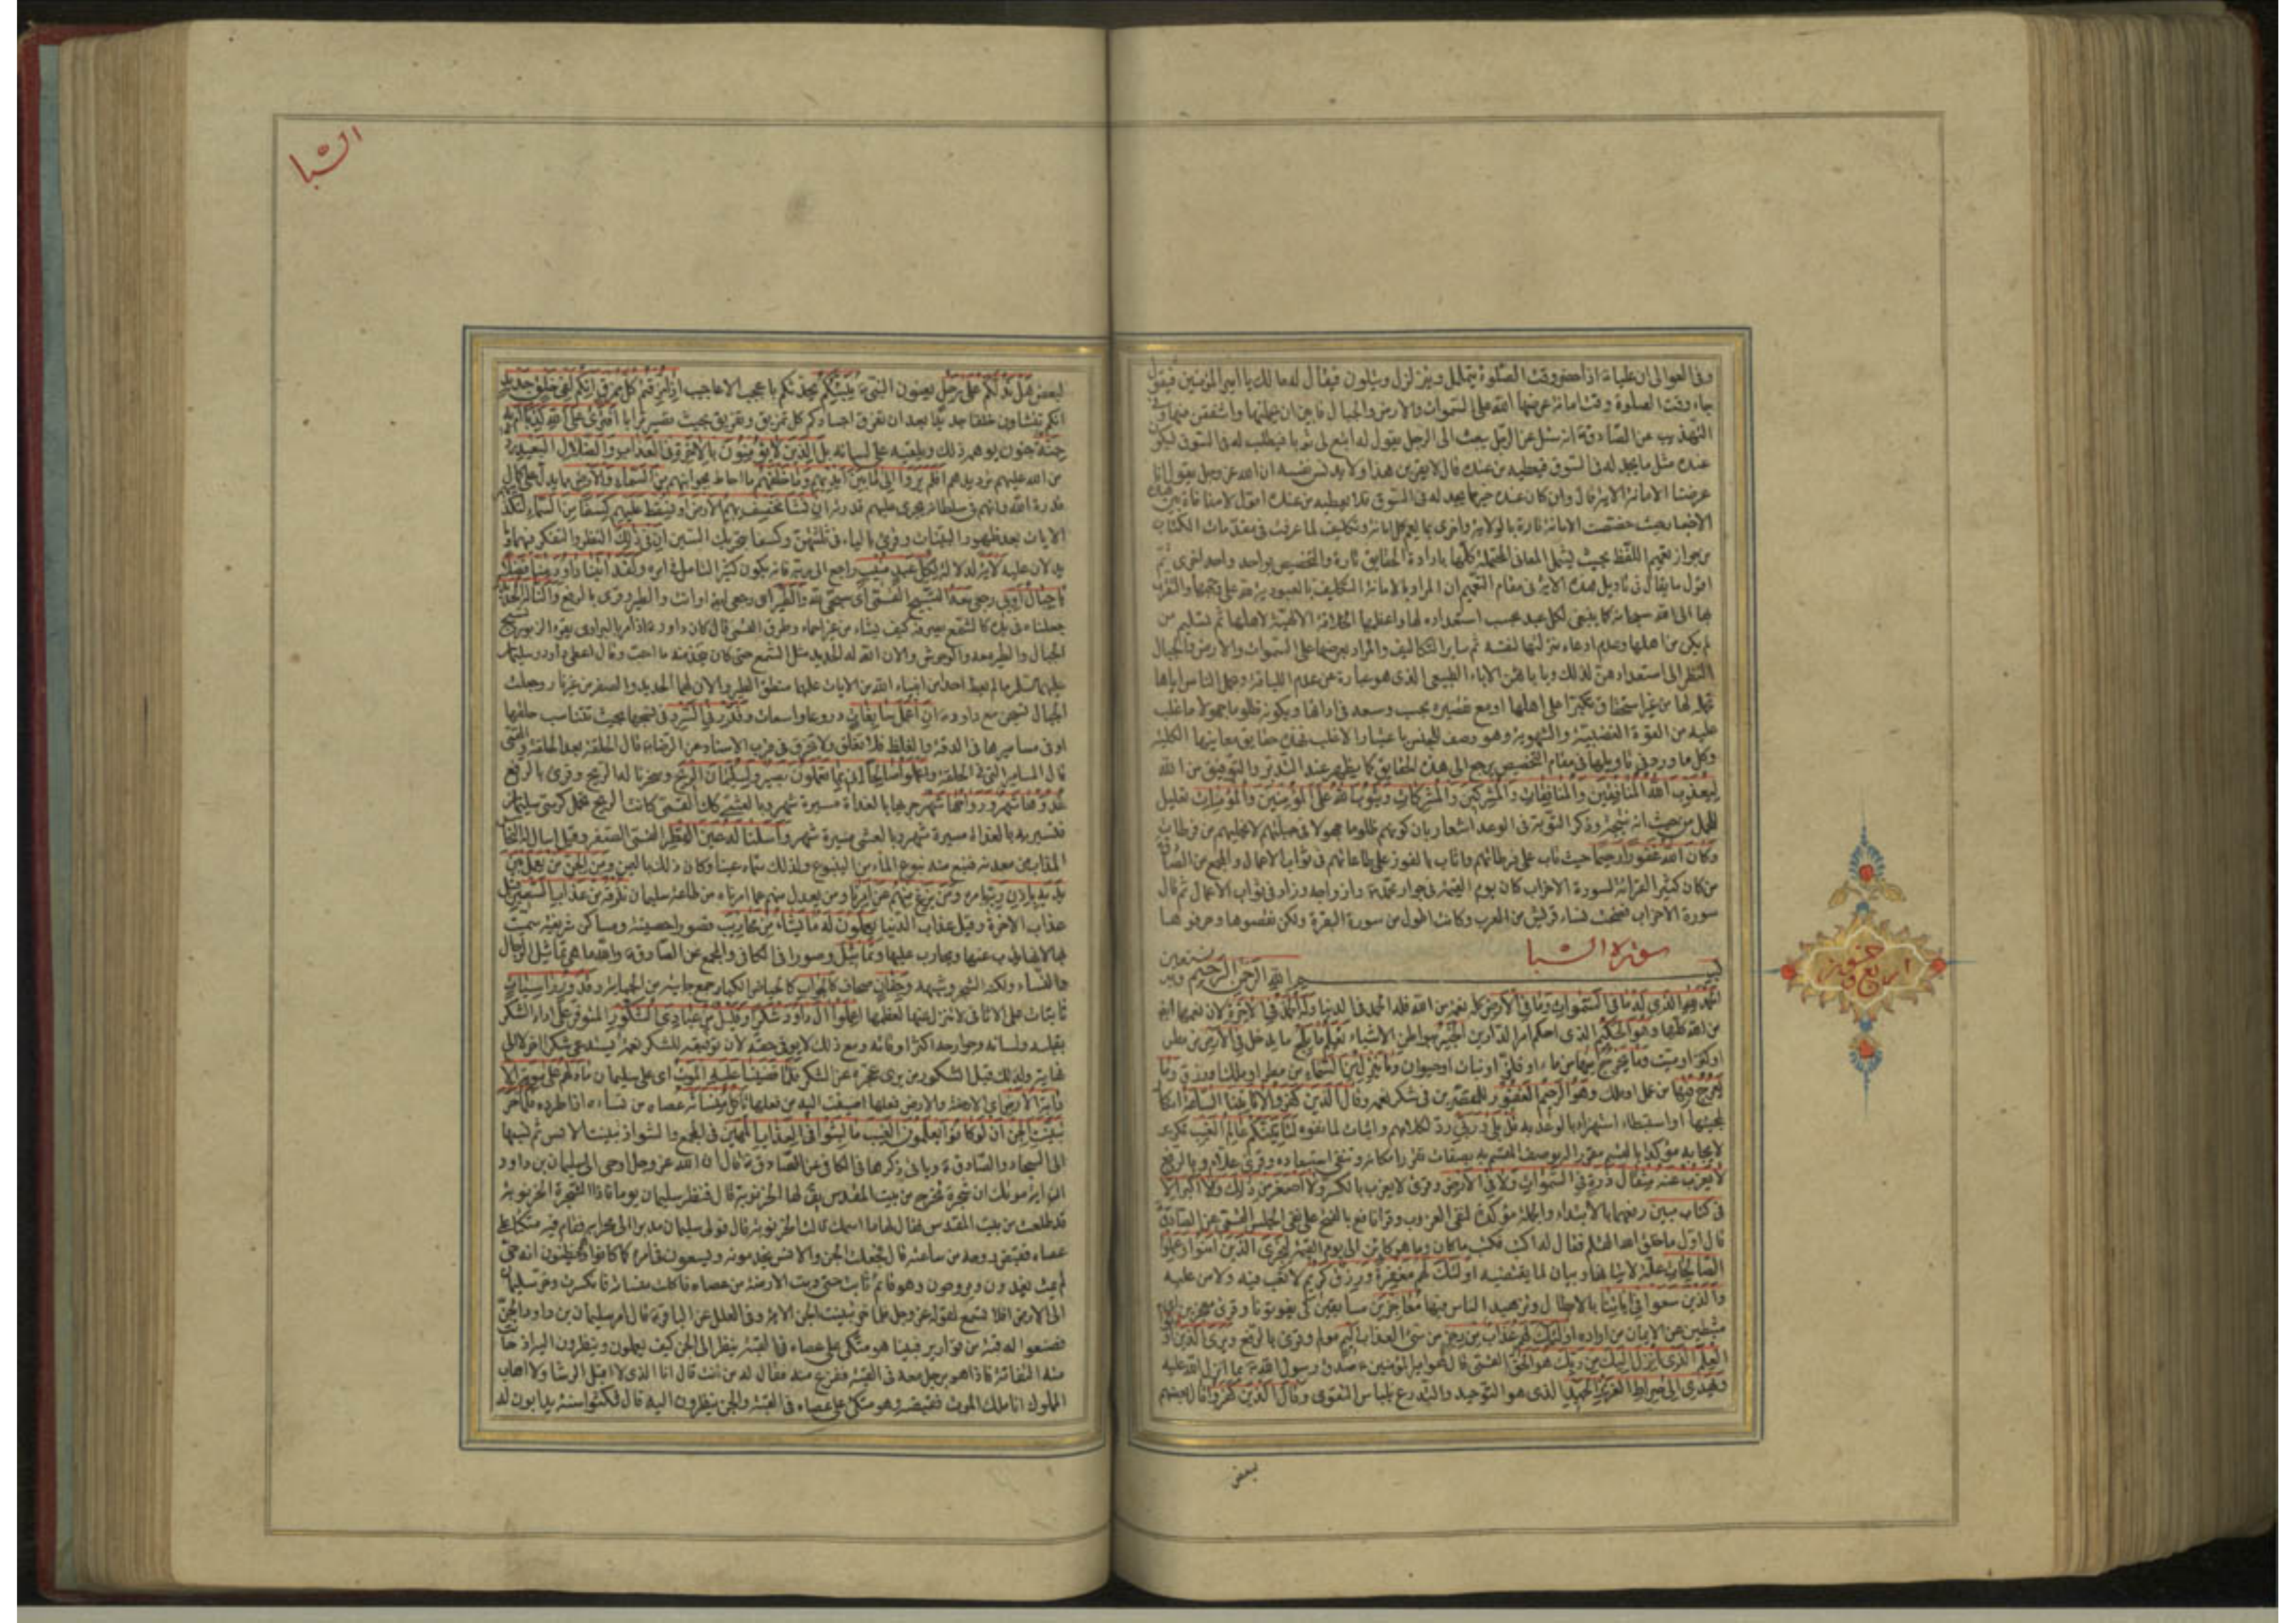 وفي العوالي ان عليا ع اذا حضر وقت الصلوة يتململ ويتزلزل ويتلون فيقال له مالك يا امير المؤمنين فيقول
جاء وقت الصلوة وقت امانة عرضها الله على السموات والارض والجبال فابين ان يحملنها واشفقن منها وفي
التهذيب عن الصادق ع انه سئل عن الرجل يبعث الى الرجل يقول له ابتع لي ثوبا فيطلب له في السوق فيكون
عنده مثل ما يجد له في السوق فيعطيه من عنده قال لا يقربن هذا ولا يدنس نفسه ان الله عز وجل يقول انا
عرضنا الامانة الآية قال وان كان عنده خيرا مما يجد له في السوق فلا يعطيه من عنده اقول لا منافاة بين هذه
الاخبار حيث خصصت الامانة تارة بالولاية واخرى بما يعم كل امانة وتكليف لما عرفت في مقدمات الكتاب
من جواز تعميم اللفظ بحيث يشمل المعاني المحتملة كلها بارادة الحقايق تارة والتخصيص بواحد واحد اخرى ثم
اقول ما يقال في تاويل هذه الآية في مقام التعميم ان المراد بالامانة التكليف بالعبودية لله على وجهها والتقرب
بها الى الله سبحانه كما ينبغي لكل عبد بحسب استعداده لها واعظمها الخلافة الالهية لاهلها ثم تسليم من
لم يكن من اهلها وعدم ادعاء منزلتها لنفسه ثم ساير التكاليف والمراد بعرضها على السموات والارض والجبال
النظر الى استعدادهن لذلك وبابائهن الاباء الطبيعي الذي هو عبارة عن عدم اللياقة وحمل الناس اياها
تحمله لها من غير استحقاق تكبرا على اهلها او مع تقصيره بحسب وسعه في ادائها وبكونه ظلوما جهولا ما غلب
عليه من القوة الغضبية والشهوية وهو وصف للجنس باعتبار الاغلب فهذه حقايق معانيها الكلية
وكل ما ورد في تاويلها في مقام التخصيص يرجع الى هذه الحقايق كما يظهر عند التدبر والتوفيق من الله
ليعذب الله المنافقين والمنافقات والمشركين والمشركات ويتوب الله على المؤمنين والمؤمنات تعليل
للحمل من حيث انه نتيجته وذكر التوبة في الوعد اشعار بان كونهم ظلوما جهولا في جبلتهم لا يخليهم من فرطات
وكان الله غفورا رحيما حيث تاب على فرطاتهم واثاب بالفوز على طاعاتهم في ثواب الاعمال والمجمع عن الصادق
من كان كثير القرائة لسورة الاحزاب كان يوم القيمة في جوار محمد ص وازواجه وزاد في ثواب الاعمال ثم قال
سورة الاحزاب فضحت نساء قريش من العرب وكانت اطول من سورة البقرة ولكن نقصوها وحرفوها
سورة السبا
بسم الله الرحمن الرحيم وبه نستعين
الحمد لله الذي له ما في السموات وما في الارض كله نعمة من الله فله الحمد في الدنيا وله الحمد في الآخرة لان نعمها ايضا
من الله كلها وهو الحكيم الذي احكم امر الدارين الخبير ببواطن الاشياء يعلم ما يلج ما يدخل في الارض من مطر
او كنز او ميت وما يخرج منها من ماء او فلز او نبات او حيوان وما ينزل من السماء من مطر او ملك او رزق وما
يعرج فيها من عمل او ملك وهو الرحيم الغفور للمقصرين في شكر نعمه وقال الذين كفروا لا تاتينا الساعة انكارا
لمجيئها او استبطاء استهزاء بالوعد به قل بلى وربي رد لكلامهم واثبات لما نفوه لتاتينكم عالم الغيب تكرير
لايجابه مؤكدا بالقسم مقررا لوصف المقسم به بصفات تقرر امكانه وتنفي استبعاده وقرئ علام وبالرفع
لا يعزب عنه مثقال ذرة في السموات ولا في الارض وقرئ لا يعزب بالكسر ولا اصغر من ذلك ولا اكبر الا
في كتاب مبين رفعهما بالابتداء والجملة مؤكدة لنفي العزوب وقرأ نافع بالفتح على نفي الجنس القمي عن الصادق
قال اول ما خلق الله القلم فقال له اكتب فكتب ما كان وما هو كائن الى يوم القيمة ليجزي الذين امنوا وعملوا
الصالحات علة لاتيانها وبيان لما يقتضيه اولئك لهم مغفرة ورزق كريم لا تعب فيه ولا من عليه
والذين سعوا في اياتنا بالابطال وتزهيد الناس فيها معاجزين مسابقين كي يفوتونا وقرئ معجزين اي
مثبطين عن الايمان من اراده اولئك لهم عذاب من رجز من سيئ العذاب اليم مولم وقرئ بالرفع ويرى الذين اوتوا
العلم الذي انزل اليك من ربك هو الحق القمي قال هو امير المؤمنين ع صدق رسول الله ص بما انزل الله عليه
ويهدي الى صراط العزيز الحميد الذي هو التوحيد والتدرع بلباس التقوى وقال الذين كفروا قال بعضهم
بعض
السبا
لبعض هل ندلكم على رجل يعنون النبي ص ينبئكم يحدثكم باعجب الاعاجيب اذا مزقتم كل ممزق انكم لفي خلق جديد
انكم تنشاون خلقا جديدا بعد ان تفرق اجسادكم كل تمزيق وتفريق بحيث تصير ترابا افترى على الله كذبا ام به
جنة جنون يوهمه ذلك ويلقيه على لسانه بل الذين لا يؤمنون بالآخرة في العذاب والضلال البعيد رد
من الله عليهم ترديدهم افلم يروا الى ما بين ايديهم وما خلفهم ما احاط بجوانبهم من السماء والارض مما يدل على كمال
قدرة الله وانهم في سلطانه تجري عليهم قدرته ان نشا نخسف بهم الارض او نسقط عليهم كسفا من السماء لتكذيبهم
الآيات بعد ظهور البينات وقرئ بالياء في ثلثهن وكسفا بتحريك السين ان في ذلك النظر والتفكر فيهما وما
يدلان عليه لآية لدلالة لكل عبد منيب راجع الى ربه فانه يكون كثير التامل في امره ولقد اتينا داود منا فضلا
يا جبال اوبي رجعي معه التسبيح القمي اي سبحي لله والطير اي رجعي ايضا او انت والطير وقرئ بالرفع والنا له الحديد
جعلناه في يده كالشمع يصرفه كيف يشاء من غير احماء وطرق القمي قال كان داود ع اذا مر بالبراري يقرء الزبور يسبح
الجبال والطير معه والوحوش والان الله له الحديد مثل الشمع حتى كان يتخذ منه ما احب وقال اعطي داود وسليمان
عليهما السلم ما لم يعط احد من انبياء الله من الآيات علمهما منطق الطير والان لهما الحديد والصفر من غير نار وجعلت
الجبال تسبحن مع داود ع ان اعمل سابغات دروعا واسعات وقدر في السرد في نسجها بحيث تتناسب حلقها
او في مساميرها في الدقة والغلظ فلا تغلق ولا تخرق في قرب الاسناد عن الرضا ع قال الحلقة بعد الحلقة والقمي
قال المسامير التي في الحلقة واعملوا صالحا اني بما تعملون بصير ولسليمان الريح وسخرنا له الريح وقرئ بالرفع
غدوها شهر ورواحها شهر جريها بالغداة مسيرة شهر وبالعشي كذلك القمي كانت الريح تحمل كرسي سليمان
فتسير به بالغداة مسيرة شهر وبالعشي مسيرة شهر واسلنا له عين القطر القمي الصفر وقيل اسال له النحاس
المذاب من معدنه فنبع منه نبوع الماء من الينبوع ولذلك سماه عينا وكان ذلك باليمن ومن الجن من يعمل بين
يديه باذن ربه بامره ومن يزغ منهم عن امرنا ومن يعدل منهم عما امرناه من طاعة سليمان نذقه من عذاب السعير قيل
عذاب الآخرة وقيل عذاب الدنيا يعملون له ما يشاء من محاريب قصور حصينة ومساكن شريفة سميت
بها لانها يذب عنها ويحارب عليها وتماثيل وصورا في الكافي والمجمع عن الصادق ع والله ما هي تماثيل الرجال
والنساء ولكنه الشجر وشبهه وجفان صحاف كالجواب كالحياض الكبار جمع جابية من الجباية وقدور راسيات
ثابتات على الاثافي لا تنزل عنها لعظمها اعملوا ال داود شكرا وقليل من عبادي الشكور المتوفر على اداء الشكر
بقلبه ولسانه وجوارحه اكثر اوقاته ومع ذلك لا يوفي حقه لان توفيقه للشكر نعمة يستدعي شكرا اخر لا الى
نهاية ولذلك قيل الشكور من يرى عجزه عن الشكر فلما قضينا عليه الموت اي على سليمان ما دلهم على موته الا
دابة الارض اي الارضة والارض فعلها اضيفت اليه من فعلها تاكل منسأته عصاه من نساءه اذا طرده فلما خر
تبينت الجن ان لو كانوا يعلمون الغيب ما لبثوا في العذاب المهين في المجمع والشواذ تبينت الانس ثم نسبها
الى السجاد والصادق ع وياتي ذكرها في الكافي عن الصادق ع قال ان الله عز وجل اوحى الى سليمان بن داود
ان اية موتك ان شجرة تخرج من بيت المقدس يقال لها الخرنوبة قال فنظر سليمان يوما فاذا الشجرة الخرنوبة
قد طلعت من بيت المقدس فقال لها ما اسمك قالت الخرنوبة قال فولى سليمان مدبرا الى محرابه فقام فيه متكئا على
عصاه فقبض روحه من ساعته قال فجعلت الجن والانس يخدمونه ويسعون في امره كما كانوا وهم يظنون انه حي
لم يمت يغدون ويروحون وهو قائم ثابت حتى دبت الارضة من عصاه فاكلت منسأته فانكسرت وخر سليمان
الى الارض افلا تسمع لقوله عز وجل فلما خر تبينت الجن الآية وفي العلل عن الباقر ع قال امر سليمان بن داود الجن
فصنعوا له قبة من قوارير فبينا هو متكئ على عصاه في القبة ينظر الى الجن كيف يعملون وينظرون اليه اذ حانت
منه التفاتة فاذا هو برجل معه في القبة ففزع منه فقال له من انت قال انا الذي لا اقبل الرشا ولا اهاب
الملوك انا ملك الموت فقبضه وهو متكئ على عصاه في القبة والجن ينظرون اليه قال فمكثوا سنة يدابون له